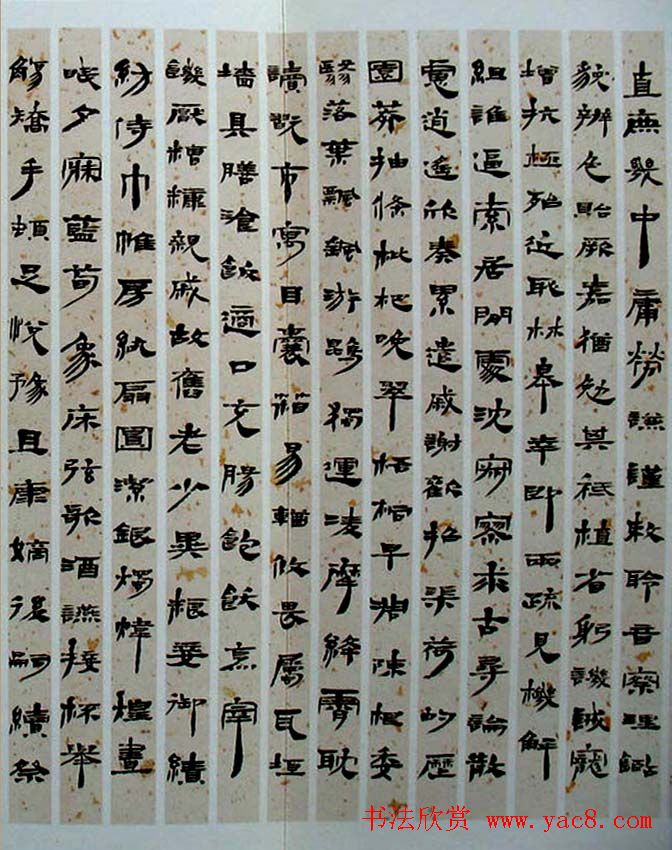 直庶幾中庸勞謙謹敕聆音察理鑑
貌辨色貽厥嘉猷勉其祗植省躬譏誡寵
增抗極殆近恥林皋幸即兩疏見機解
組誰逼索居閒處沈寂寥求古尋論散
慮逍遙欣奏累遣慼謝歡招渠荷的歷
園莽抽條枇杷晚翠梧桐早凋陳根委
翳落葉飄颻游鵾獨運凌摩絳霄耽
讀翫市寓目囊箱易輶攸畏屬耳垣
墻具膳飡飯適口充腸飽飫烹宰
饑厭糟糠親戚故舊老少異糧妾御績
紡侍巾帷房紈扇圓潔銀燭煒煌晝
眠夕寐藍筍象床弦歌酒讌接杯舉
觴矯手頓足悅豫且康嫡後嗣續祭
书法欣赏 www.yac8.com